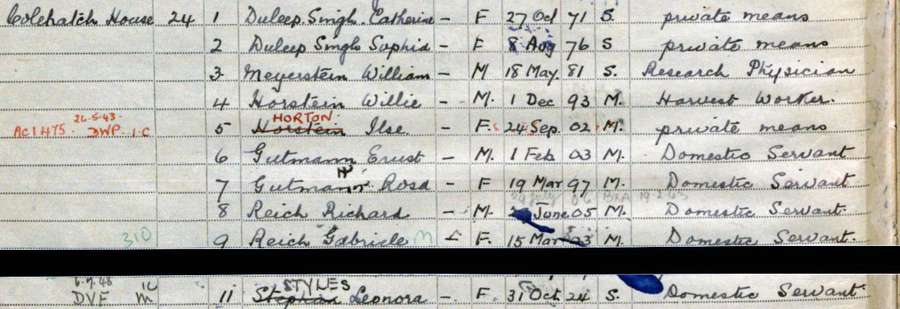 Colehatch House 24 1 Duleep Singh Catherine – F 27 Oct 71 S. private means
2 Duleep Singh Sophia – F 8 Aug 76 S private means
3 Meyerstein William – M 18 May. 81 S. Research Physician
4 Horstein Willie – M. 1 Dec 93 M. Harvest Worker.
26-5-43. HORTON
AC1475 DWP 1-C 5 Horstein Ilse – F. 24 Sep. 02 M. private means
6 Gutmann Ernst – M. 1 Feb 03 M. Domestic Servant
7 Gutmann Rosa – F 19 Mar 97 M. Domestic Servant
8 Reich Richard – M. June 05 M. Domestic Servant.
310 9 Reich Gabriele m F. 15 Mar M. Domestic Servant.
STYLES
DVF m 11 Stephan Leonora – F. 31 Oct 24 S. Domestic Servant